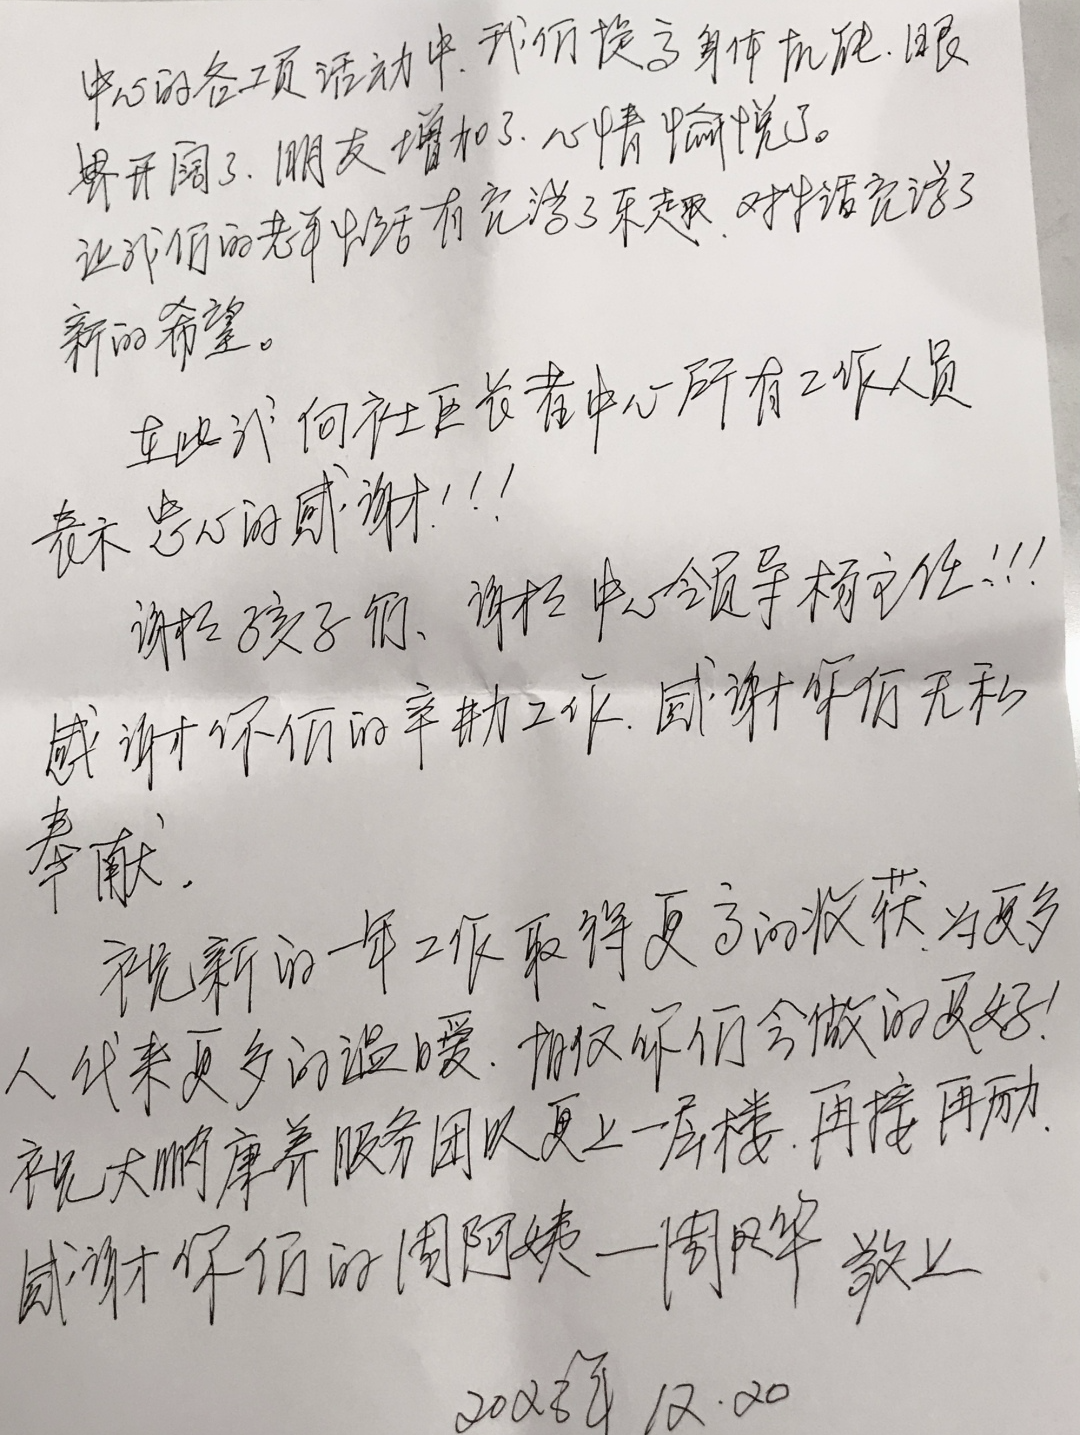 中心的各项活动中、我们提高身体机能、眼
界开阔了、朋友增加了、心情愉悦了。
让我们的老年生活有充满了乐趣、对生活充满了
新的希望。
在此我向社区长者中心所有工作人员
表示忠心的感谢!!!
谢谢孩子们、谢谢中心领导杨主任!!!
感谢你们的辛勤工作、感谢你们无私
奉献.
祝新的一年工作取得更高的收获、为更多
人代来更多的温暖、相信你们会做的更好!
祝大鹏康养服务团队更上一层楼、再接再励、
感谢你们的周阿姨—周 华 敬上
年12.20